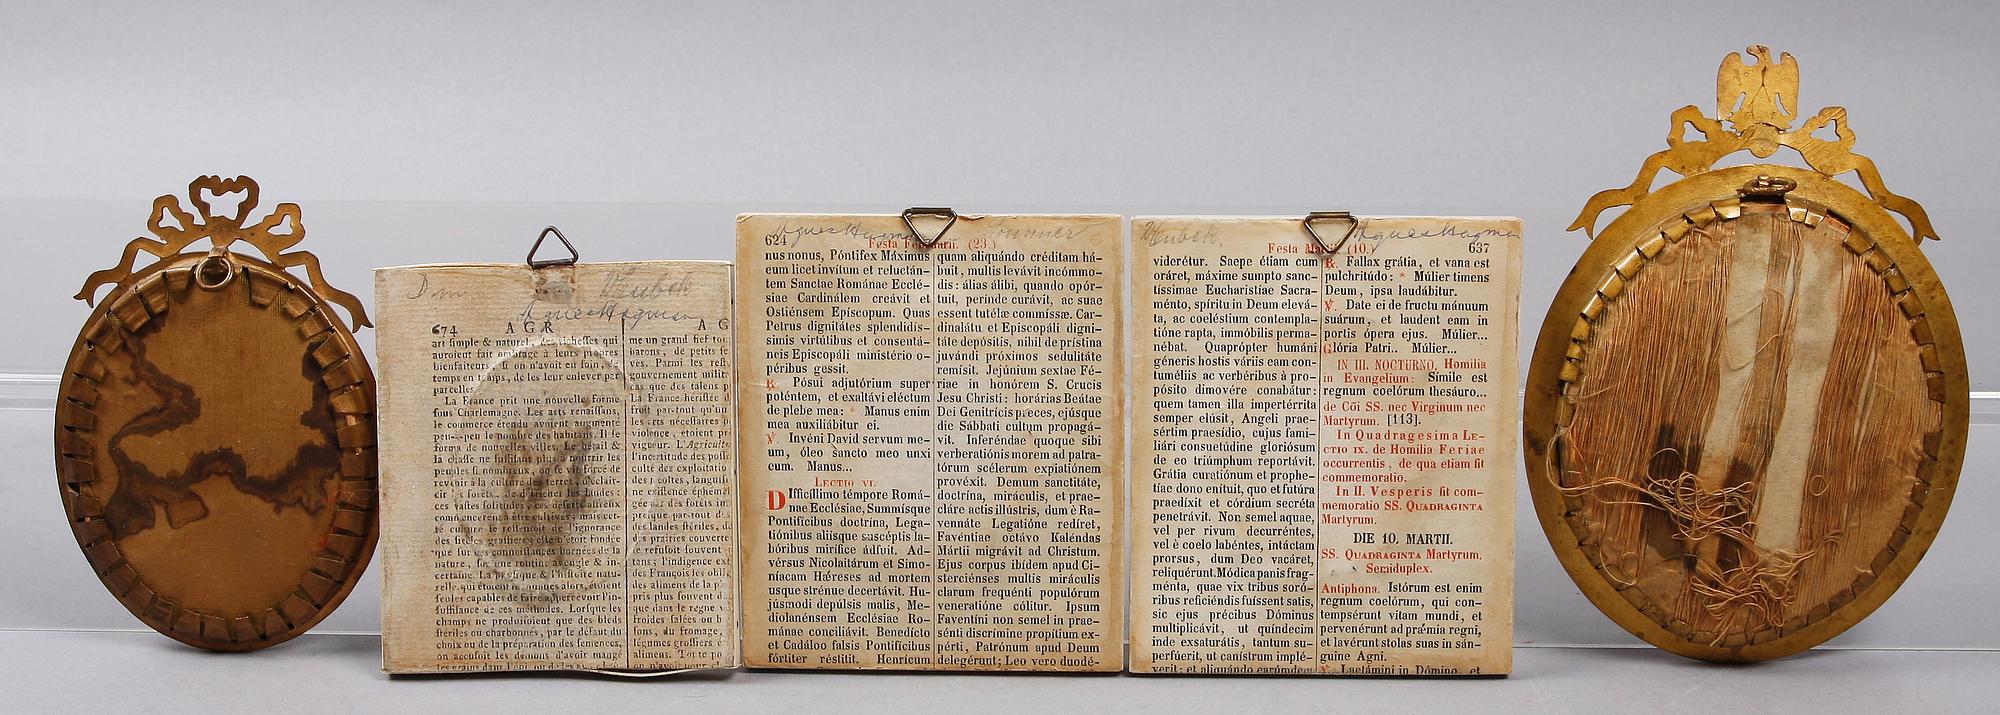 Agnes Hagman
674 AGR AG
art simple & naturel, des richesses qui
auroient fait ombrage à leurs propres
bienfaiteurs, si on n'avoit en soin, de
temps en temps, de les leur enlever par
parcelles.
La France prit une nouvelle forme
sous Charlemagne. Les arts renaissans,
le commerce étendu avoient augmenté
peu-à-peu le nombre des habitans. Il se
forma de nouvelles villes. Le bétail &
la chasse ne suffisant plus à nourrir les
peuples si nombreux, on se vit forcé de
revenir à la culture des terres, d'éclair-
cir les forêts, de défricher les landes :
ces vastes solitudes, ces déserts immenses
commencèrent à être cultivés ; mais ce
fut sur
nature, sur une routine aveugle & in-
certaine. La physique & l'histoire natu-
relle, qui étoient
seules capables de faire appercevoir l'in-
suffisance de ces méthodes. Lorsque les
champs ne produisoient que des bleds
stériles ou charbonnés, par le défaut du
choix ou de la préparation des semences,
on accusoit les démons d'avoir mangé
les grains dans l'épi, ou de les avoir
me un grand fief
barons, de petits
ves. Parmi les
gouvernement
cas que des talens
La France hérissée
froit par-tout qu'un
les arts nécessaires
violence, étoient
vigueur. L'Agricultu
l'incertitude des
culté des exploitatio
des récoltes,
ne existence éphémè
gée par des forêts
presque par-tout
des landes stériles,
des prairies couverte
se refusoit souvent
tans ; l'indigence
des François les obli
les alimens de la
plus souvent
que dans le règne
froides salées ou
sons, du fromage,
légumes grossiers
alimens. Toute
on n'avoit pour
624 Festa Februarii. (23.)
nus nonus, Póntifex Máximus
eum licet invítum et reluctán-
tem Sanctae Románae Ecclé-
siae Cardinálem creávit et
Ostiénsem Epíscopum. Quas
Petrus dignitátes splendidís-
simis virtútibus et consentá-
neis Episcopáli ministério o-
péribus gessit.
℟. Pósui adjutórium super
poténtem, et exaltávi eléctum
de plebe mea: * Manus enim
mea auxiliábitur ei.
℣. Invéni David servum me-
um, óleo sancto meo unxi
eum. Manus...
Lectio VI.
Difficíllimo témpore Romá-
nae Ecclésiae, Summísque
Pontifícibus doctrína, Lega-
tiónibus aliísque suscéptis la-
bóribus mirífice ádfuit. Ad-
vérsus Nicolaitárum et Simo-
níacam Hǽreses ad mortem
usque strénue decertávit. Hu-
júsmodi depúlsis malis, Me-
diolanénsem Ecclésiae Ro-
mánae conciliávit. Benedícto
et Cadáloo falsis Pontifícibus
fórtiter réstitit. Henrícum
quam aliquándo créditam há-
buit, multis levávit incómmo-
dis: álias álibi, quando opór-
tuit, perínde curávit, ac suae
essent tutélæ commíssæ. Car-
dinalátu et Episcopáli digni-
táte depósitis, nihil de prístina
juvándi próximos sedulitáte
remísit. Jejúnium sextae Fé-
riae in honórem S. Crucis
Jesu Christi: horárias Beátae
Dei Genitrícis preces, ejúsque
die Sábbati cultum propagá-
vit. Inferéndae quoque sibi
verberatiónis morem ad patra-
tórum scélerum expiatiónem
provéxit. Demum sanctitáte,
doctrína, miráculis, et prae-
cláre actis illústris, dum è Ra-
vennáte Legatióne redíret,
Favéntiae octávo Kaléndas
Mártii migrávit ad Christum.
Ejus corpus ibídem apud Ci-
sterciénses multis miráculis
clarum frequénti populórum
veneratióne cólitur. Ipsum
Faventíni non semel in prae-
sénti discrímine propítium ex-
pérti, Patrónum apud Deum
delegérunt; Leo vero duodé-
Agnes Hagman
Festa Martii. (10.) 637
viderétur. Saepe étiam cum
oráret, máxime sumpto sanc-
tíssimae Eucharístiae Sacra-
ménto, spíritu in Deum elevá-
ta, ac coeléstium contempla-
tióne rapta, immóbilis perma-
nébat. Quaprópter humáni
géneris hostis váriis eam con-
tuméliis ac verbéribus à pro-
pósito dimovére conabátur:
quem tamen illa impertérrita
semper elúsit, Angeli prae-
sértim praesídio, cujus famí-
liári consuetúdine gloriósum
de eo triúmphum reportávit.
Grátia curatiónum et prophe-
tíae dono enítuit, quo et futúra
praedíxit et córdium secréta
penetrávit. Non semel aquae,
vel per rivum decurréntes,
vel è coelo labéntes, intáctam
prorsus, dum Deo vacáret,
reliquérunt. Módica panis frag-
ménta, quae vix tribus soró-
ribus reficiéndis fuíssent satis,
sic ejus précibus Dóminus
multiplicávit, ut quíndecim
inde exsaturális, tantum su-
perfúerit, ut canístrum implé-
verit: et aliquándo eaprúmdem
℟. Fallax grátia, et vana est
pulchritúdo: * Múlier timens
Deum, ipsa laudábitur.
℣. Date ei de fructu mánuum
suárum, et laudent eam in
portis ópera ejus. Múlier...
Glória Patri.. Múlier...
IN III. NOCTURNO, Homilia
in Evangelium: Símile est
regnum coelórum thesáuro...
de Cõi SS. nec Virginum nec
Martyrum. [113].
In Quadragesima Le-
ctio ix. de Homilia Feriae
occurrentis, de qua etiam fit
commemoratio.
In II. Vesperis fit com-
memoratio SS. Quadraginta
Martyrum.
DIE 10. MARTII.
SS. Quadraginta Martyrum.
Semiduplex.
Antiphona. Istórum est enim
regnum coelórum, qui con-
tempsérunt vitam mundi, et
pervenérunt ad præmia regni,
et lavérunt stolas suas in sán-
guine Agni.
℣. Laetámini in Dómino, et